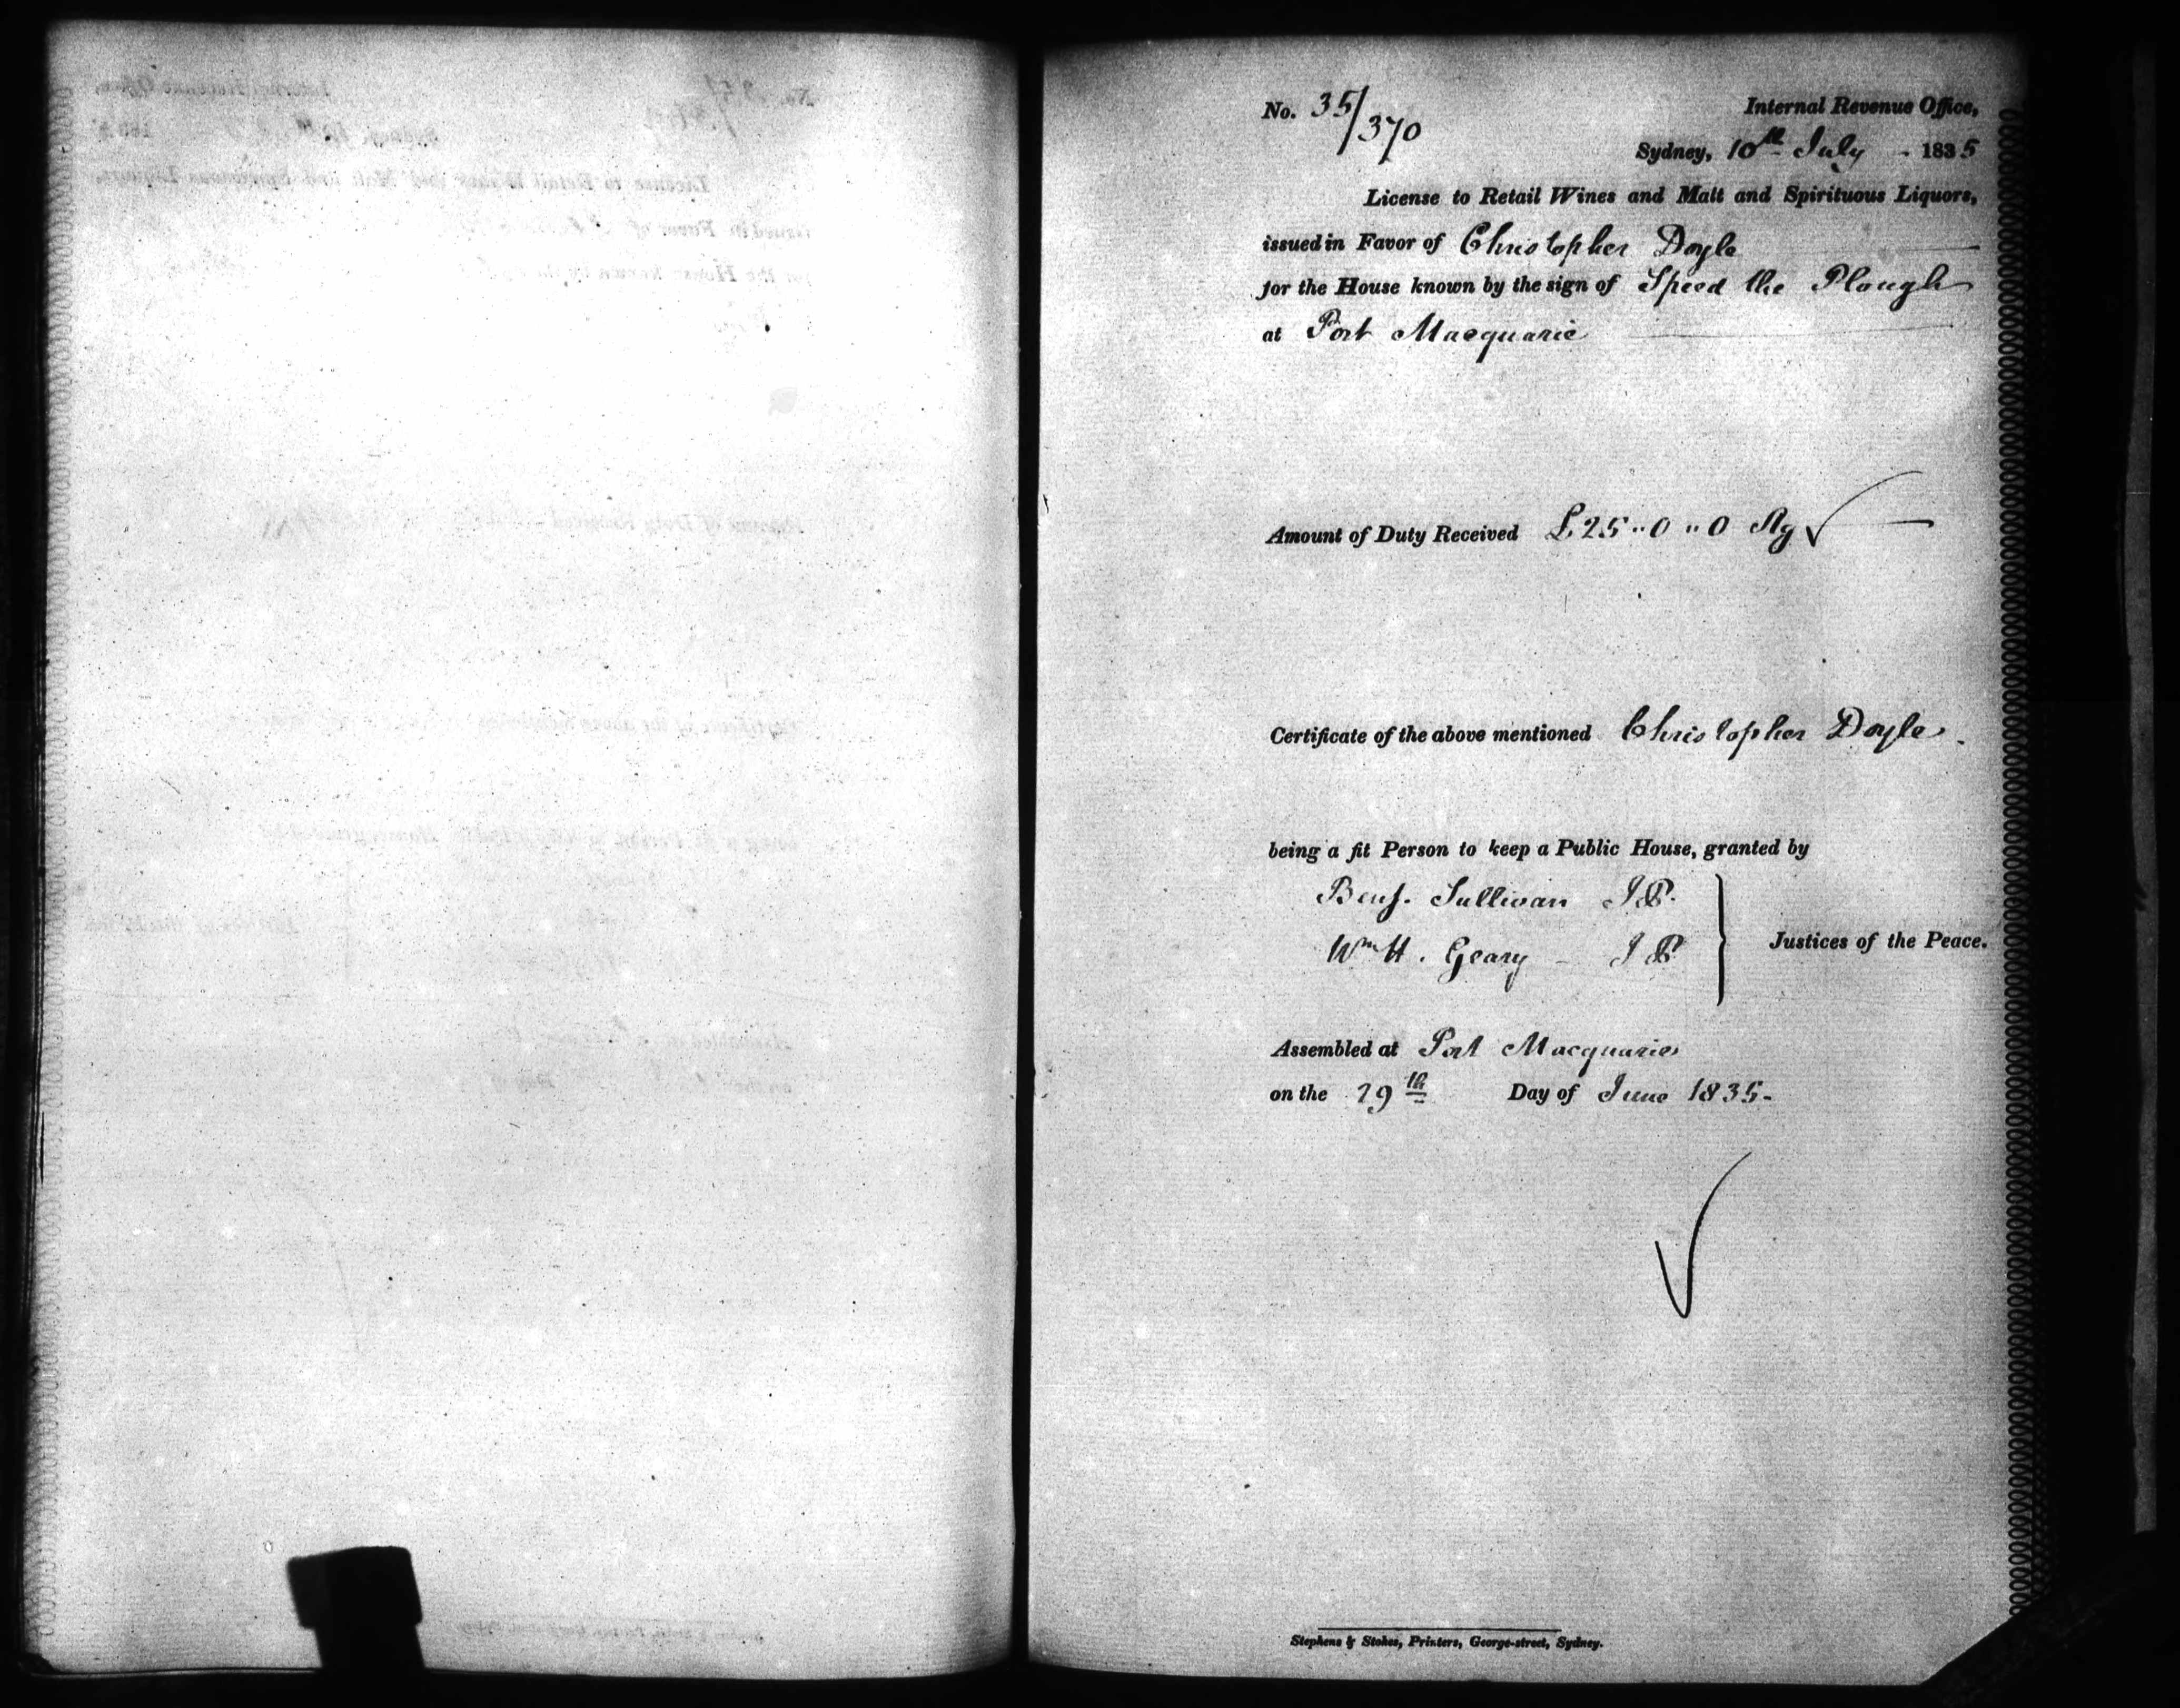 No. 35/370
Internal Revenue Office,
Sydney, 10th July - 1835
License to Retail Wines and Malt and Spirituous Liquors,
issued in Favor of Christopher Doyle
for the House known by the sign of Speed the Plough
at Port Macquarie
Amount of Duty Received £25"0"0 Stg
Certificate of the above mentioned Christopher Doyle.
being a fit Person to keep a Public House, granted by
Benj. Sullivan J.P.
Wm H. Geary - J.P.
Justices of the Peace.
Assembled at Port Macquarie
on the 29th Day of June 1835-
Stephens & Stokes, Printers, George-street, Sydney.